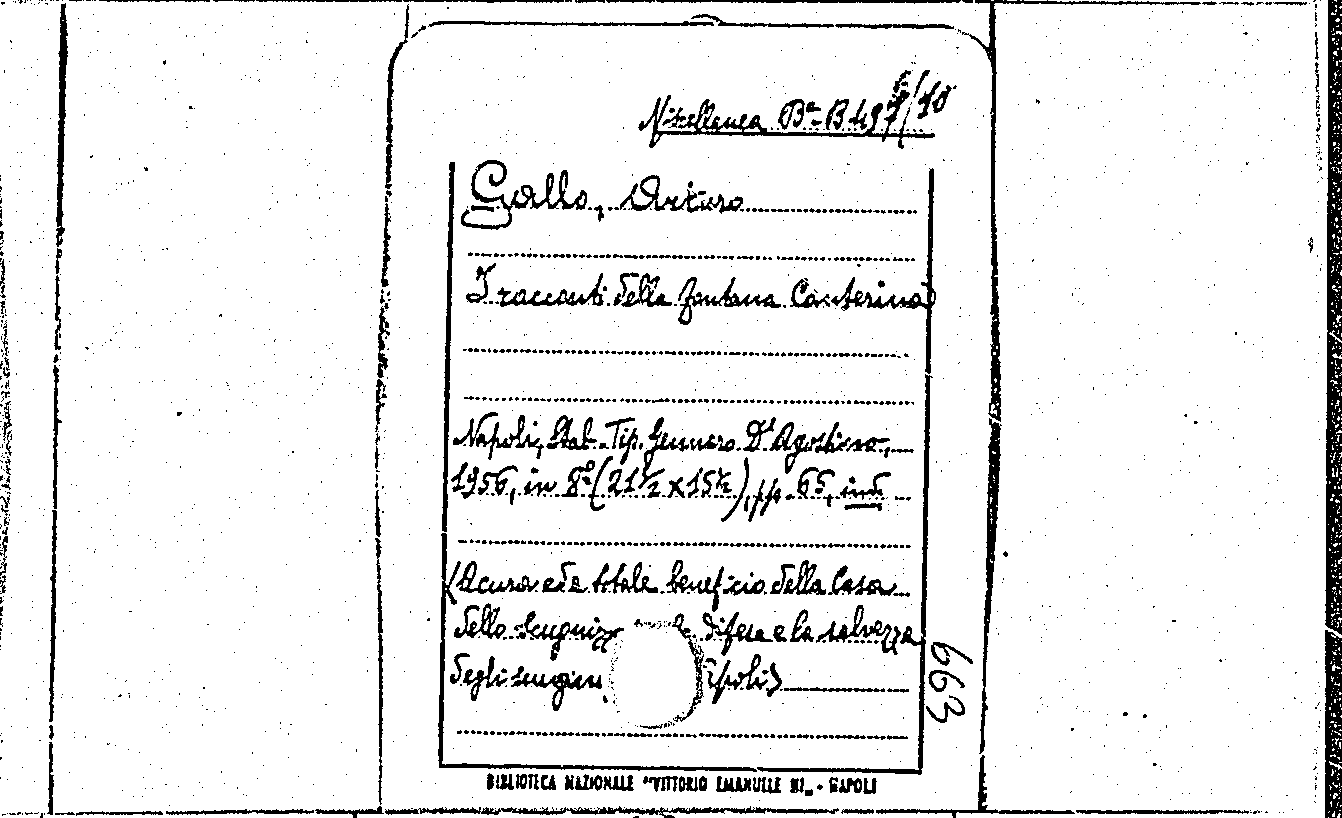 Miscellanea Bª- B 497/10
Gallo, Arturo
I racconti della fontana Canterina
Napoli, Stab. Tip. Gennaro D'Agostino,
1956, in 8º (21½ x 15½), pp. 65, ind
(A cura ed a totale beneficio della Casa
dello scugnizz la difesa e la salvezza
degli scugni apoli)
663
BIBLIOTECA NAZIONALE "VITTORIO EMANUELE III„ - NAPOLI